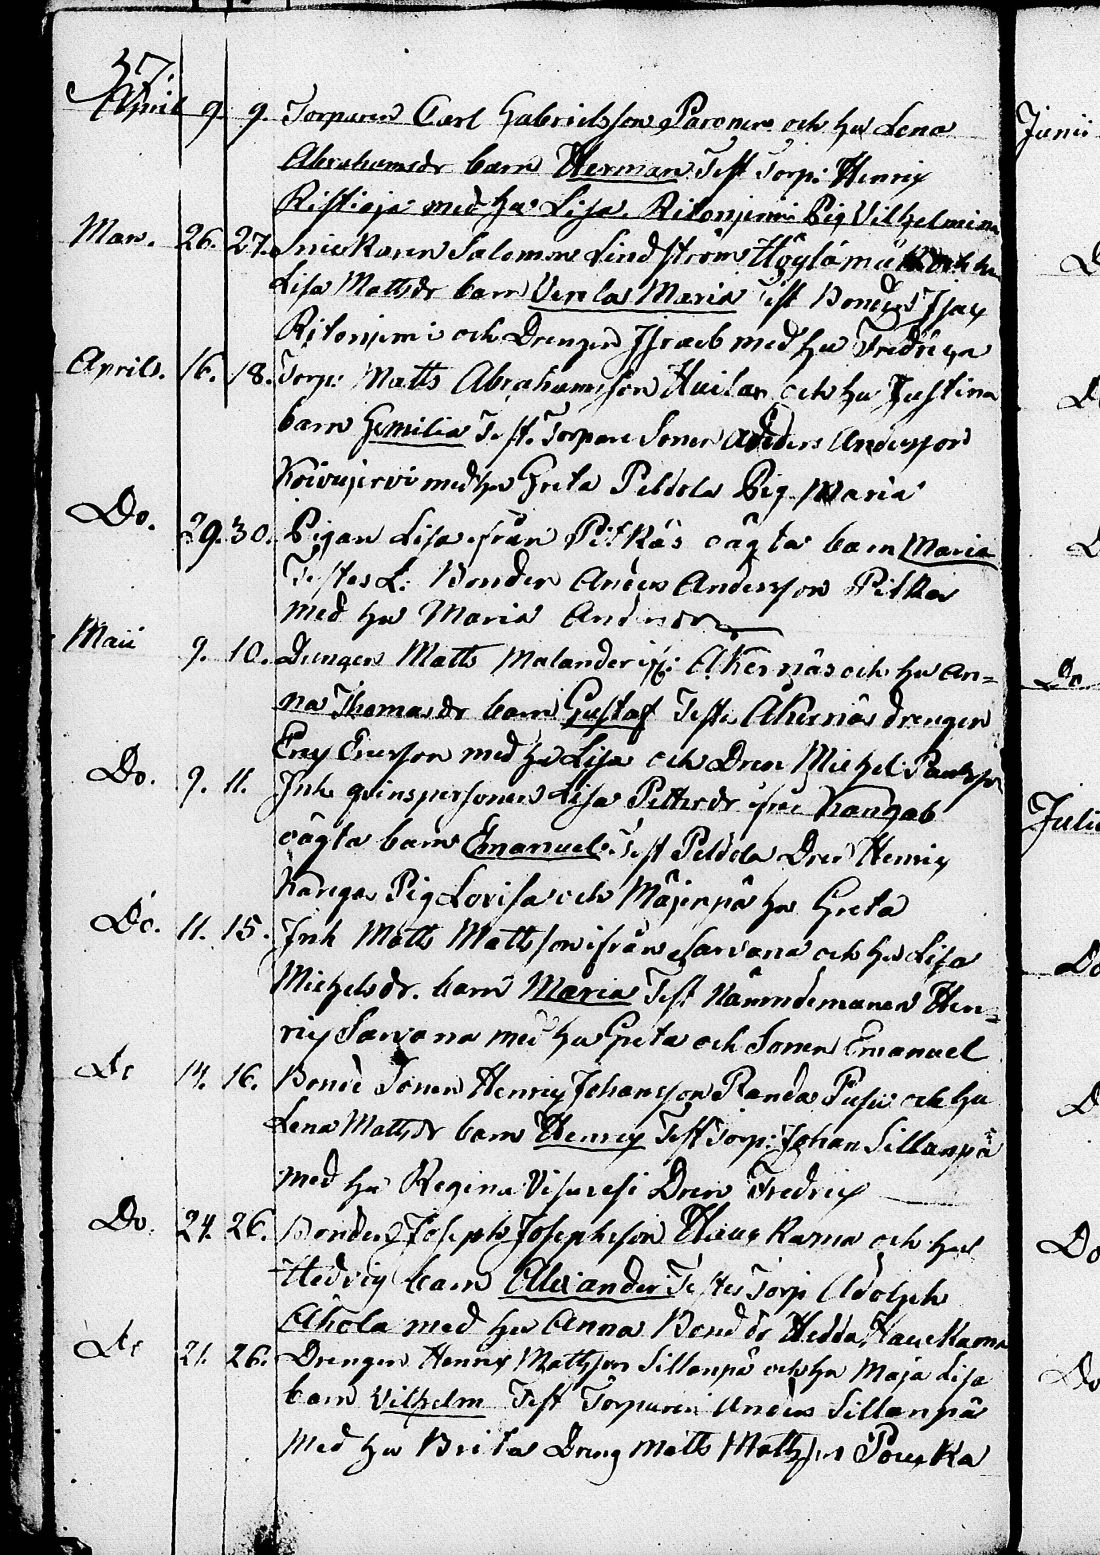 37.
April 9. 9. Torparen Carl Gabrielsson och hu Lena
Abrahamsdr barn Herman Test Torp: Henrix
med hu Lisa Ritoniemi Pig Vilhelmina
Mar. 26. 27. Salomon Lindström
Lisa Mattsdr barn Maria Test Bonden Isax
Ritoniemi och Drengen Israel med hu Fredrica
Aprill. 16. 18. Torp: Matts Abrahamsson och hu Justina
barn Test. Torpare Sonen Anders Andersson
Koivujervi med hu Greta Peldola Pig Maria
Do. 29. 30. Pigan Lisa ifrån Pitkäs oägta barn Maria
Testes L: Bonden Anders Andersson Pitkä
med hu Maria
Maii 9. 10. Drengen Matts Malander Åkernäs och hu An=
na Thomasdr barn Gustaf Teste Åkernäs drengen
Erix Ericsson med hu Lisa och Dren Michel
Do. 9. 11. Inh. qvinspersonen Lisa Pettersdr ifrån
oägta barn Emanuel Test Peldola Dren Henrix
Pig Lovisa och hu Greta
Do. 11. 15. Inh Matts Mattsson ifrån Sarvana och hu Lisa
Michelsdr. barn Maria Test Nämndemanen Hen=
rix Sarvana med hu Greta och Sonen Emanuel
Do 14. 16. Bonde Sonen Henrix Johansson Randa och hu
Lena Mattsdr barn Henrix Test Torp: Johan Sillanpä
med hu Regina Dren Fredrix
Do. 24. 26. Bonden Joseph Josephsson Haukama och hu
Hedvig barn Alexander Testes Torp Adolph
Ahola med hu Anna Bond dr Hedda Haukkama
Do 21. 26. Drengen Henrix Mattsson Sillanpä och hu Maja Lisa
barn Vilhelm Test Torparen Anders Sillanpä
med hu Brita Dreng Matts Mattsson
Junii
Do
Do
Do
Do
Julii
Do
Do
Do
Do